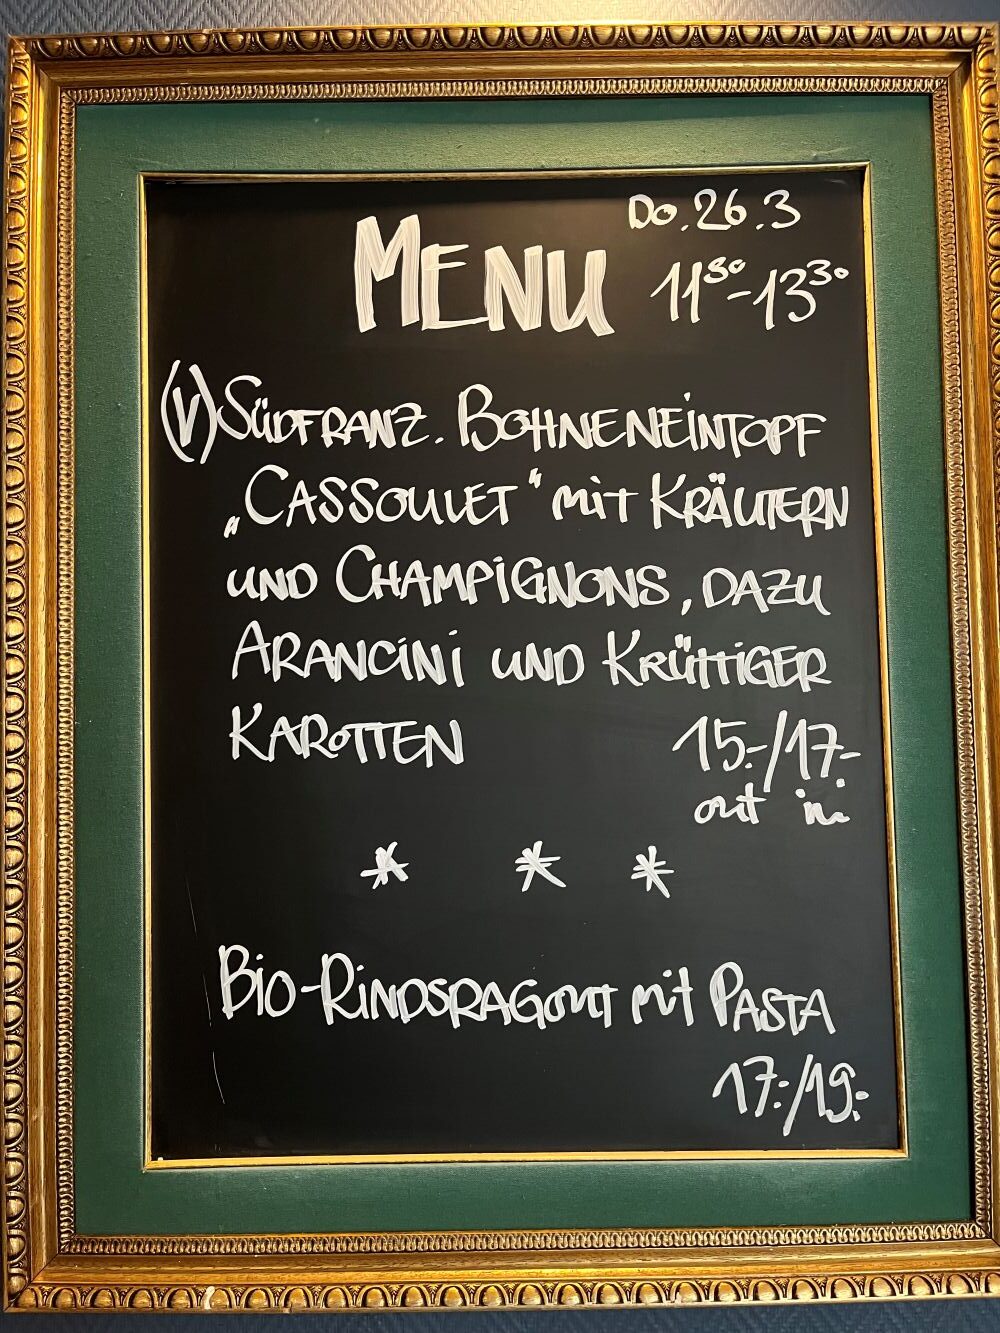 Do. 26.3
MENU 11³⁰-13³⁰
(V) SÜDFRANZ. BOHNENEINTOPF
„CASSOULET“ mit KRÄUTERN
UND CHAMPIGNONS, DAZU
ARANCINI UND KRÜTTIGER
KAROTTEN 15.-/17.-
out in
* * *
BIO-RINDSRAGOUT mit PASTA
17.-/19.-